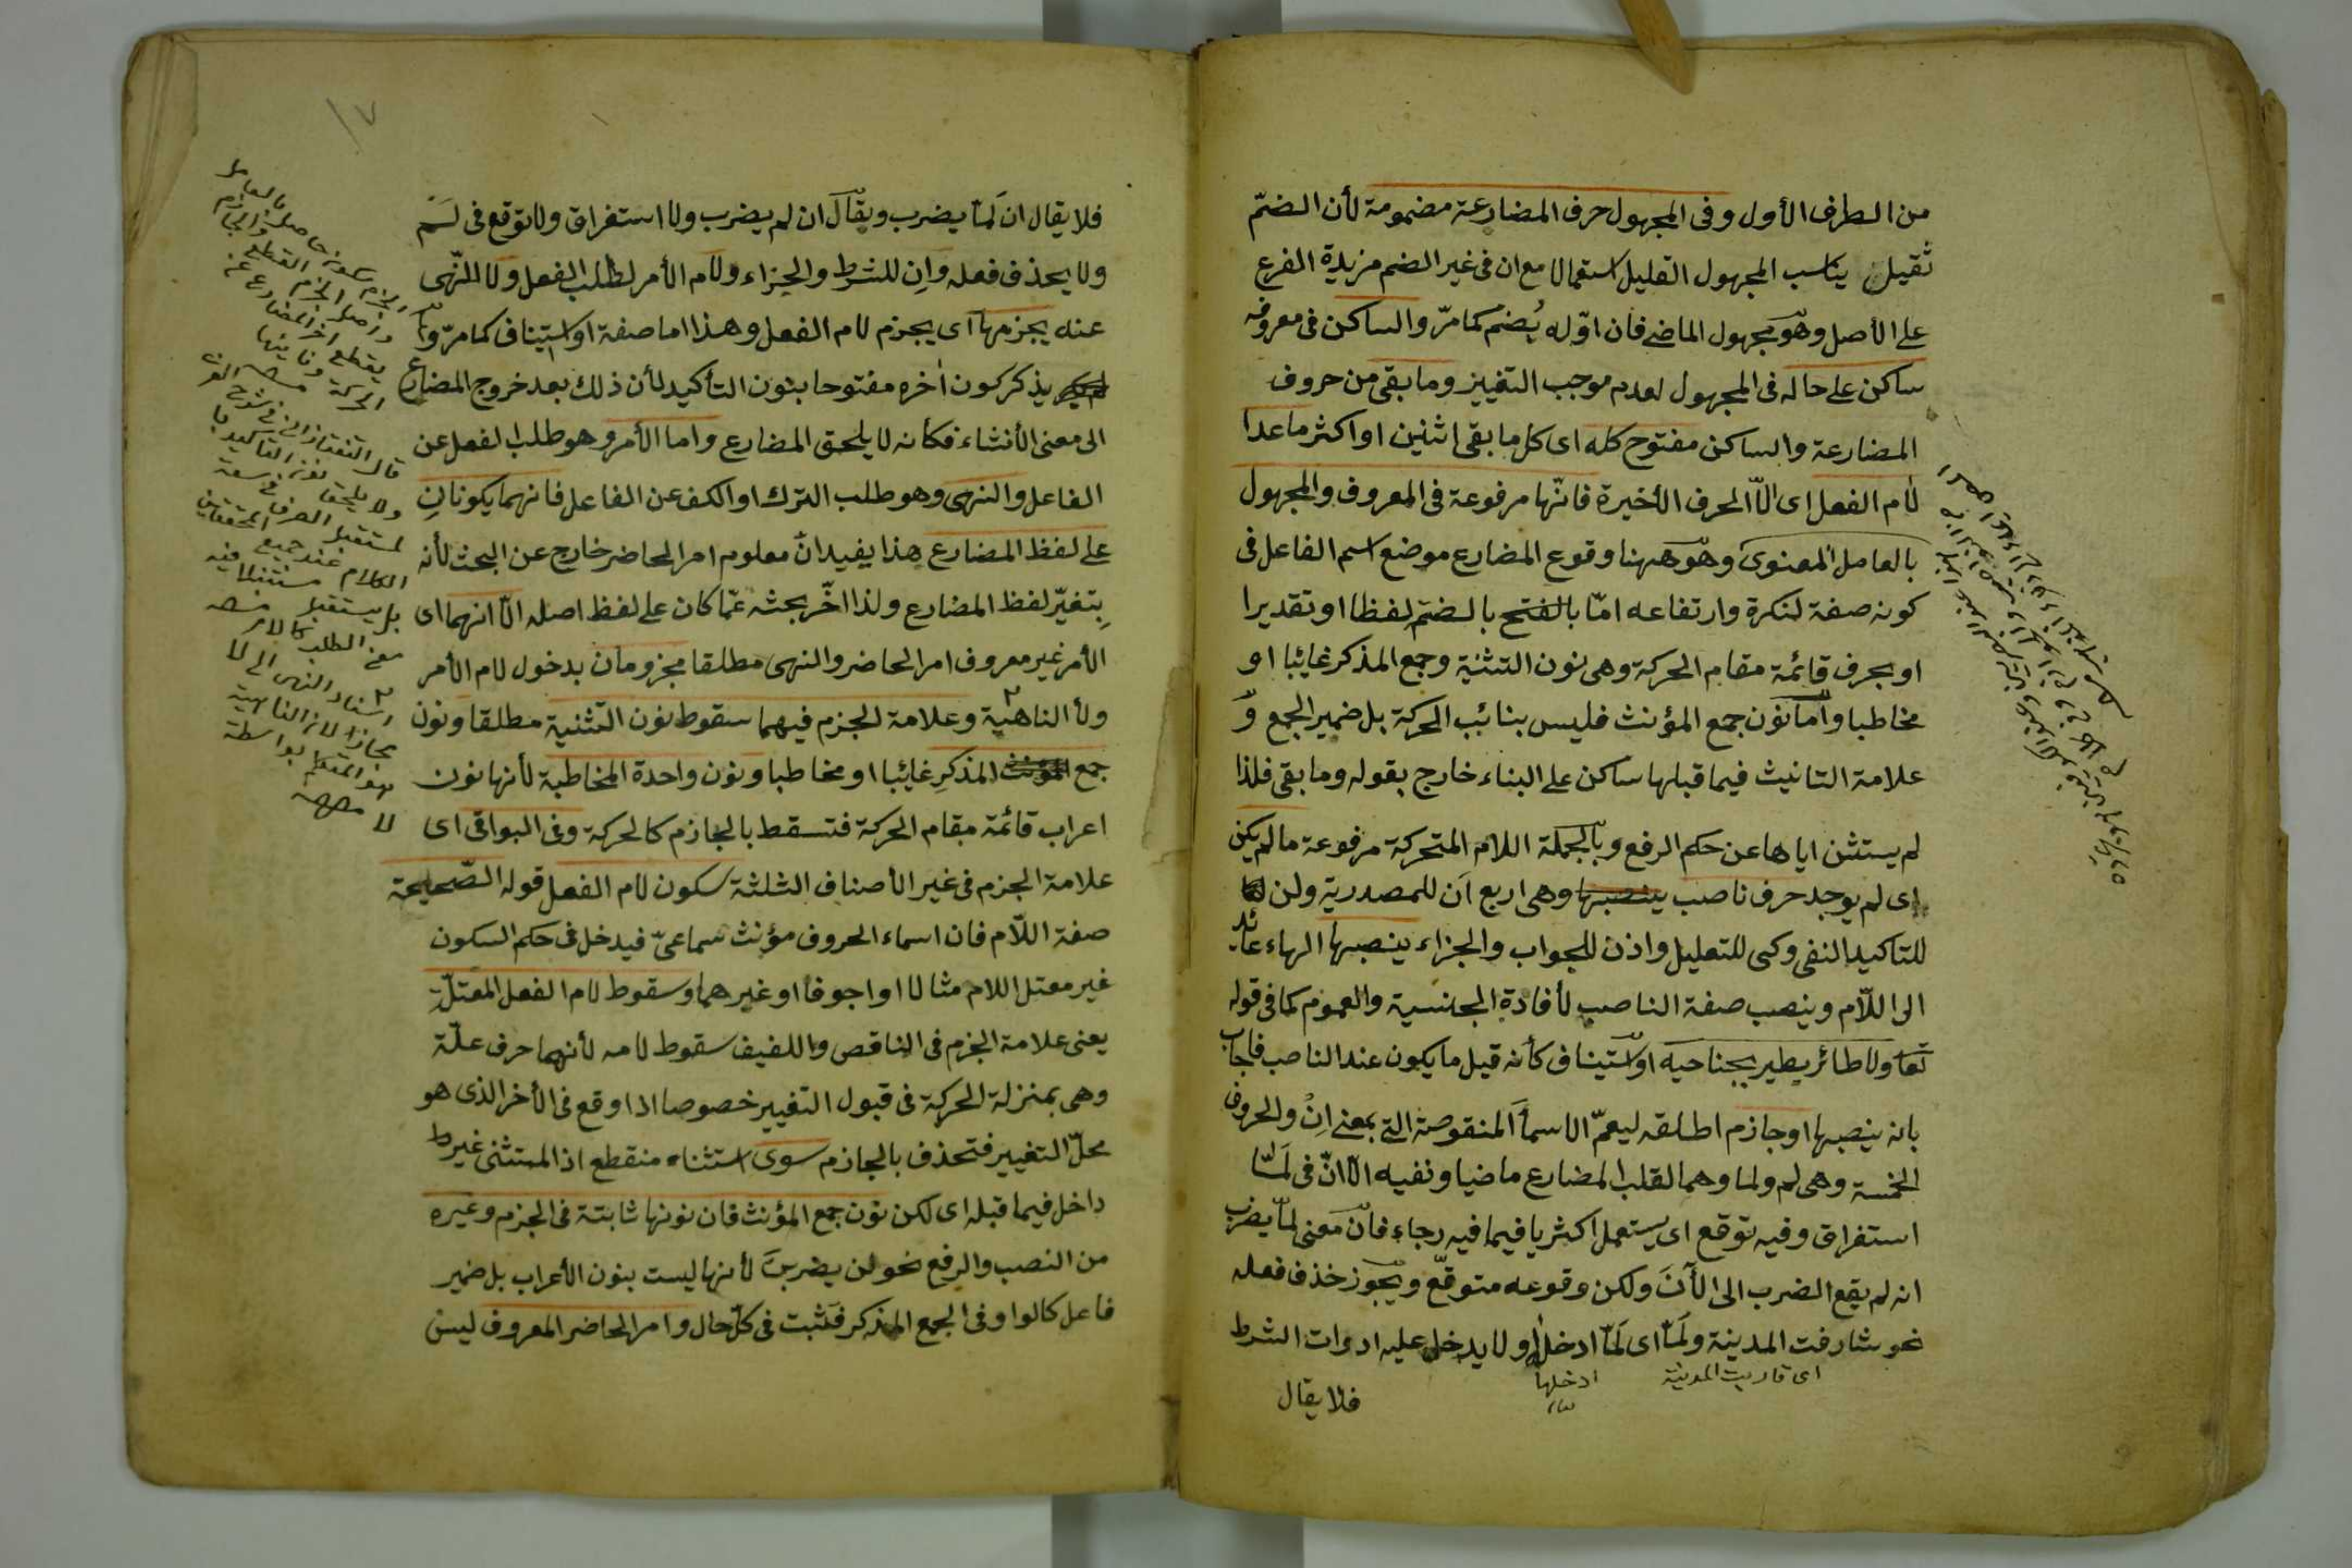 من الطرف الأول وفى المجهول حرف المضارعة مضمومة لأن الضمّ
ثقيل يناسب المجهول القليل استعمالا مع ان فى غير الضم مزيدة الفرع
على الأصل وهو مجهول الماضى فان اوّله يُضم كما مرّ والساكن فى معروفه
ساكن على حاله فى المجهول لعدم موجب التغيير وما بقى من حروف
المضارعة والساكن مفتوح كله اى كل ما بقى اثنين او اكثر ما عدا
لام الفعل اى الّا الحرف الأخيرة فانّها مرفوعة فى المعروف والمجهول
بالعامل المعنوى وهو ههنا وقوع المضارع موضع اسم الفاعل فى
كونه صفة لنكرة وارتفاعه امّا بالفتح بالضم لفظا او تقديرا
او بحرف قائمة مقام الحركة وهى نون التثنية وجمع المذكر غائبا او
مخاطبا واما نون جمع المؤنث فليس بنائب الحركة بل ضمير الجمع و
علامة التانيث فيما قبلها ساكن على البناء خارج بقوله وما بقى فلذا
لم يستثن اياها عن حكم الرفع وبالجملة اللام المتحركة مرفوعة مالم يكن
اى لم يوجد حرف ناصب ينصبها وهى اربع اَن للمصدرية ولن
للتاكيد النفى وكى للتعليل واذن للجواب والجزاء ينصبها الهاء عائد
الى اللّام وينصب صفة الناصب لأفادة الجنسية والعموم كما فى قوله
تعا ولا طائر يطير بجناحيه او استيناف كأنه قيل ما يكون عند الناصب فاجاب
بانه ينصبها او جازم اطلقه ليعمّ الاسمأ المنقوصة التى بمعنى اِنْ والحروف
الخمسة وهى لم ولما وهما لقلب المضارع ماضيا ونفيه الّا انّ فى لَمّا
استغراق وفيه توقع اى يستعمل اكثريا فيما فيه رجاء فانّ معنى لمّا يضرب
انه لم يقع الضرب الى الآنَ ولكن وقوعه متوقّع ويجوز حذف فعله
نحو شارفت المدينة ولَمّا اى لَمّا ادخل ولا يدخل عليه ادوات الشرط
اى قاربت المدينة
ادخلها
فلا يقال
فلا يقال ان لَمّا يضرب ويقال ان لم يضرب ولا استغراق ولا توقع فى لَمْ
ولا يحذف فعله واِن للشرط والجزاء ولام الأمر لطلب الفعل ولا للنّهى
عنه يجزمها اى يجزم لام الفعل وهذا اما صفة او استيناف كما مرّ وا
يذكر كون أخره مفتوحا بنون التأكيد لأن ذلك بعد خروج المضارع
الى معنى الأنشاء فكانه لا يلحق المضارع واما الأمر وهو طلب الفعل عن
الفاعل والنهى وهو طلب الترك او الكف عن الفاعل فانهما يكونانِ
على لفظ المضارع هذا يفيد انّ معلوم امر الحاضر خارج عن البحث لأنه
بِتغيّر لفظ المضارع ولذا اخّر بحثه عمّا كان على لفظ اصله الّا انهما اى
الأمر غير معروف امر الحاضر والنهى مطلقا مجزومان بدخول لام الأمر
ولا الناهية وعلامة الجزم فيهما سقوط نون التثنية مطلقا ونون
جمع المذكرِ غائبا او مخاطبا ونون واحدة المخاطبة لأنها نون
اعراب قائمة مقام الحركة فتسقط بالجازم كالحركة وفى البواقى اى
علامة الجزم فى غير الأصناف الثلثة سكون لام الفعل قوله الصّحيحة
صفة اللّام فان اسماء الحروف مؤنث سماعىّ فيدخل فى حكم السكون
غير معتل اللام مثالا او اجوفا او غيرهما وسقوط لام الفعل المعتلّة
يعنى علامة الجزم فى الناقص واللفيف سقوط لامه لأنهما حرف علّة
وهى بمنزلة الحركة فى قبول التغيير خصوصا اذا وقع فى الأخر الذى هو
محلّ التغيير فتحذف بالجازم سوى استثناء منقطع اذ المستثنى غير ط
داخل فيما قبله اى لكن نون جمع المؤنث فان نونها ثابتة فى الجزم وغيره
من النصب والرفع نحو لن يضربن لأنها ليست بنون الأعراب بل ضمير
فاعل كالواو فى الجمع المذكر فتثبت فى كلّ حال وامر الحاضر المعروف ليس
قال التفتازانى فى شرح
ولا يلحق نون التأكيد
الكلام عند جميع المحققين
معنى الطلب كالامر
اسناد النهى الى لا
مجاز لان الناهية
هو المتكلم بواسطة
لا